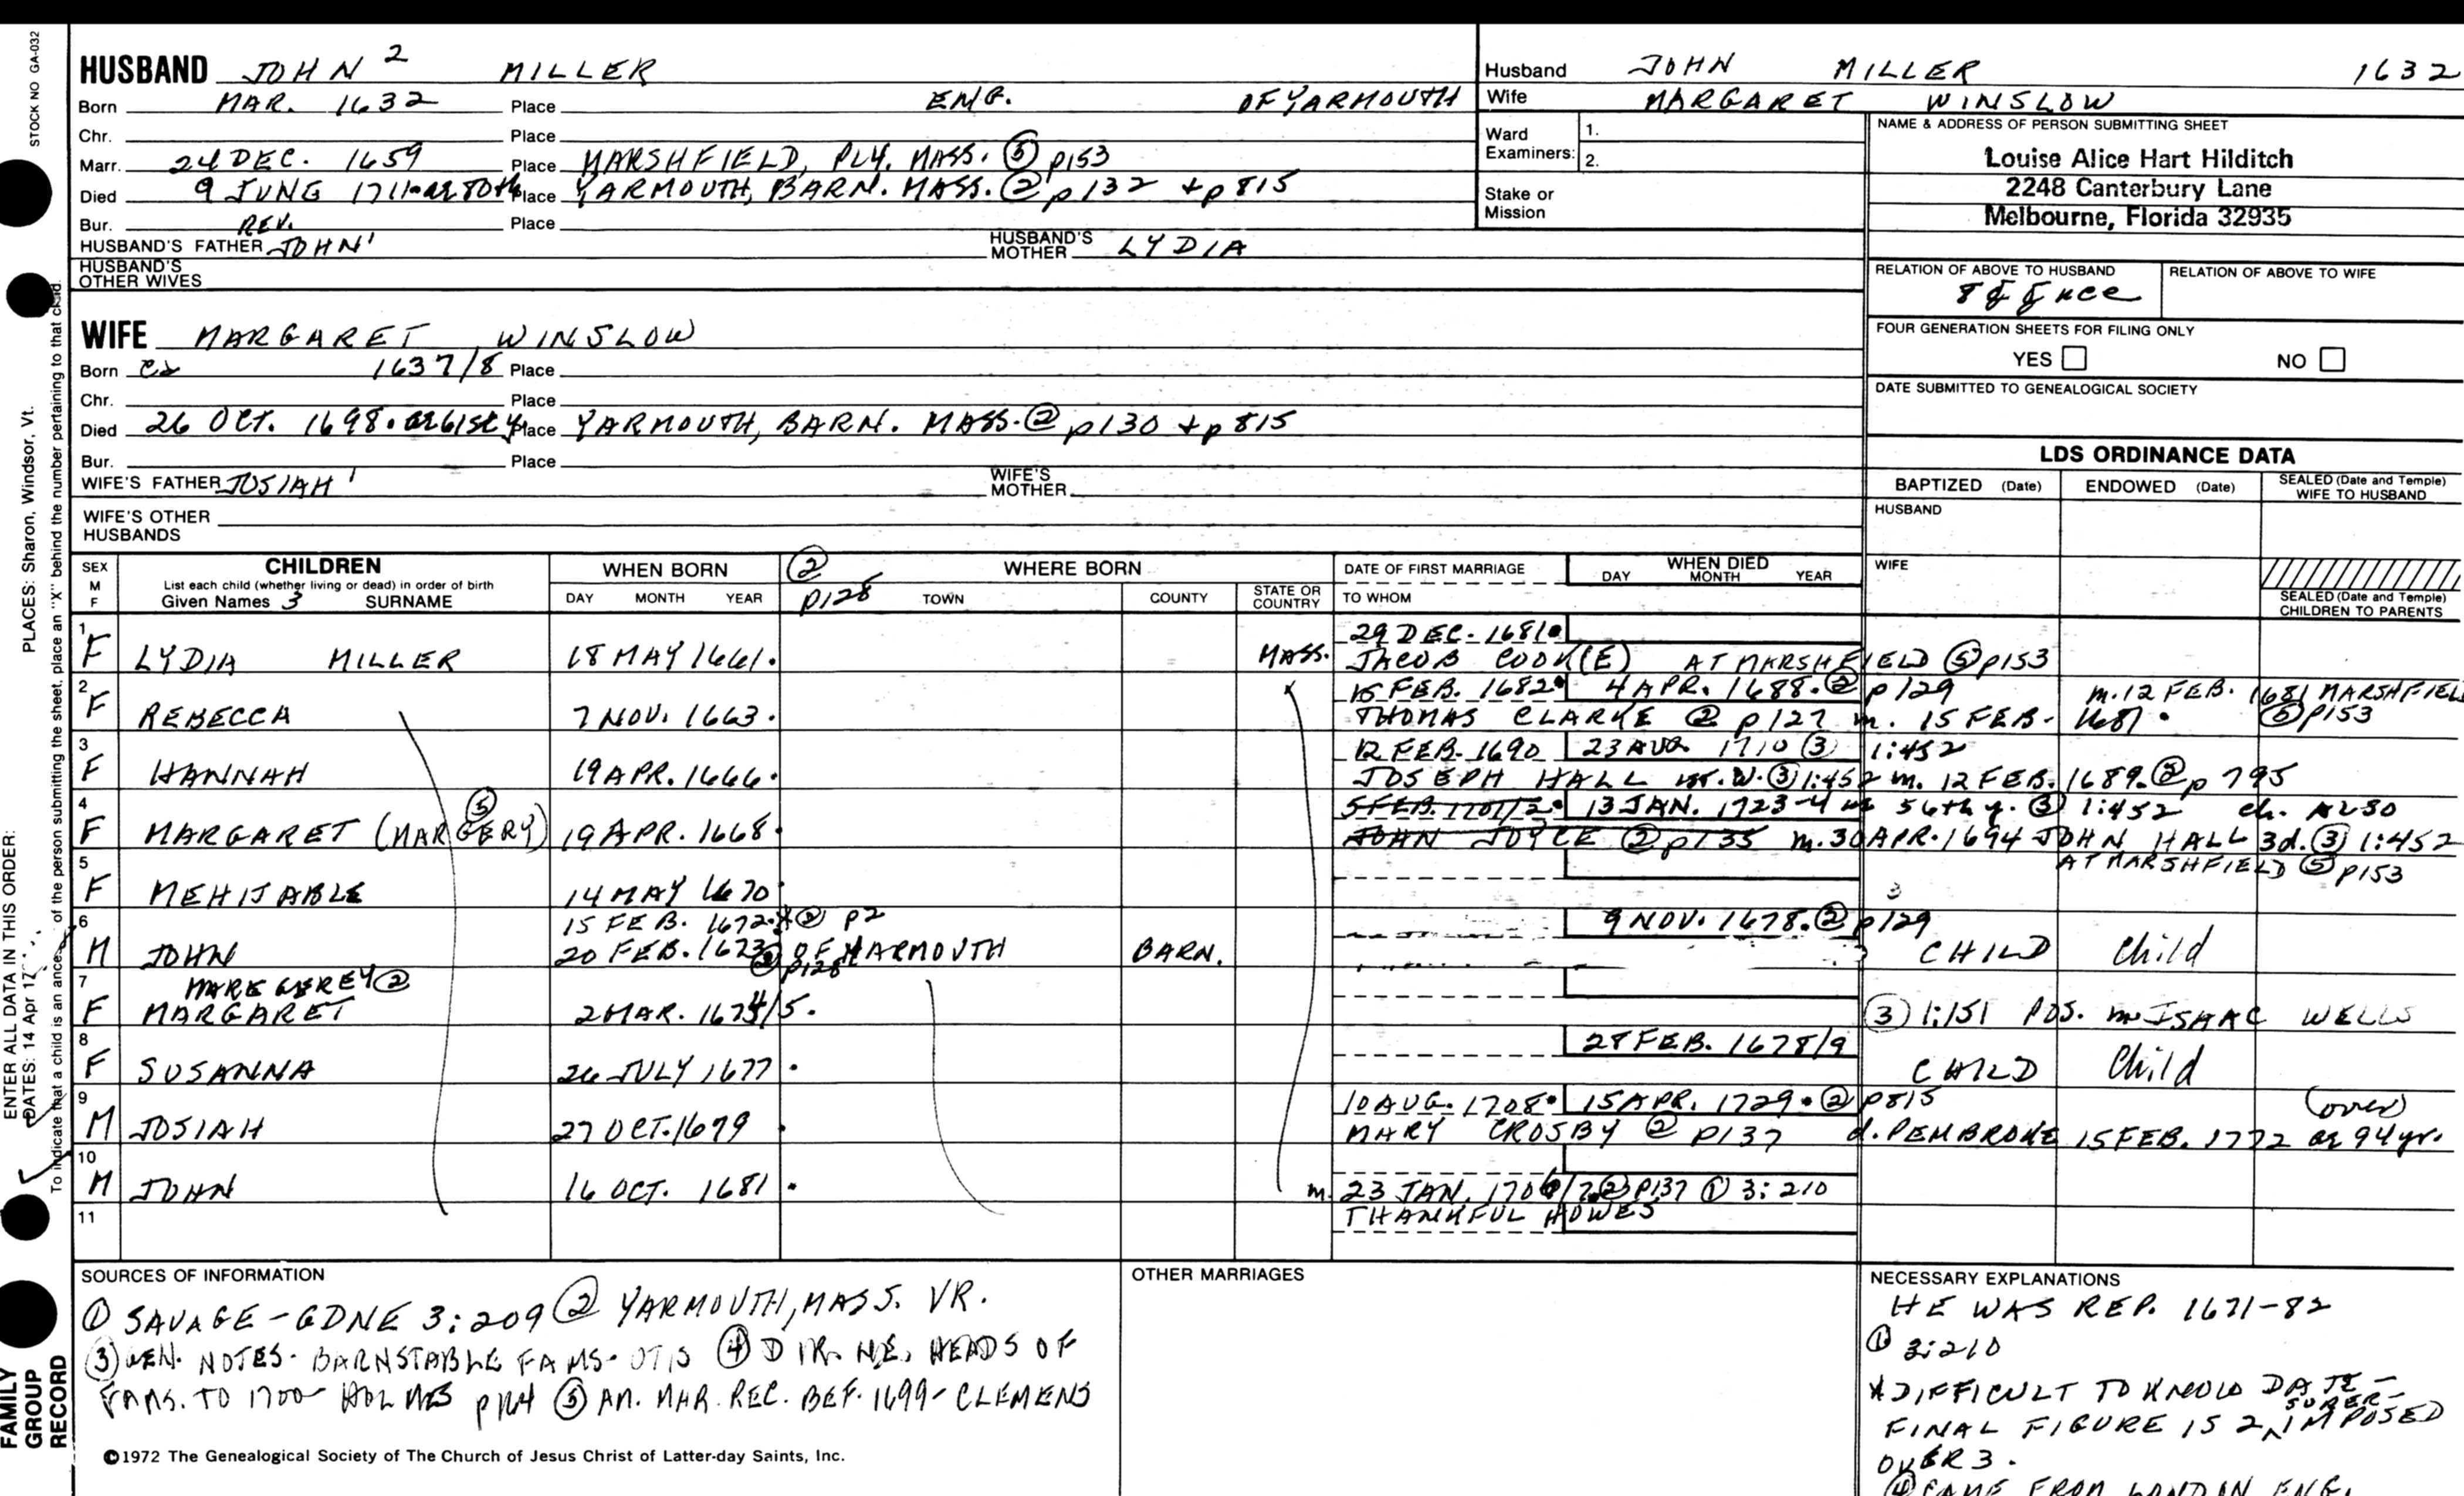 STOCK NO GA-032
HUSBAND JOHN 2 MILLER
Born MAR. 1632 Place ENG. OF YARMOUTH
Chr. Place
Marr. 24 DEC. 1659 Place MARSHFIELD, PLY. MASS. ⑤ p153
Died 9 JUNE 1711 Place YARMOUTH, BARN. MASS. ② p132 + p815
Bur. REV. Place
HUSBAND'S FATHER JOHN 1 HUSBAND'S MOTHER LYDIA
HUSBAND'S OTHER WIVES
WIFE MARGARET WINSLOW
Born ca 1637/8 Place
Chr. Place
Died 26 OCT. 1698. ae 61st y Place YARMOUTH, BARN. MASS. ② p130 + p815
Bur. Place
WIFE'S FATHER JOSIAH 1 WIFE'S MOTHER
WIFE'S OTHER HUSBANDS
Husband JOHN MILLER 1632
Wife MARGARET WINSLOW
Ward Examiners: 1.
2.
Stake or Mission
NAME & ADDRESS OF PERSON SUBMITTING SHEET
Louise Alice Hart Hilditch
2248 Canterbury Lane
Melbourne, Florida 32935
RELATION OF ABOVE TO HUSBAND RELATION OF ABOVE TO WIFE
FOUR GENERATION SHEETS FOR FILING ONLY
YES NO
DATE SUBMITTED TO GENEALOGICAL SOCIETY
LDS ORDINANCE DATA
BAPTIZED (Date) ENDOWED (Date) SEALED (Date and Temple) WIFE TO HUSBAND
HUSBAND
WIFE
SEALED (Date and Temple) CHILDREN TO PARENTS
SEX M F
CHILDREN
List each child (whether living or dead) in order of birth
Given Names 3 SURNAME
WHEN BORN
DAY MONTH YEAR
② p128 WHERE BORN
TOWN COUNTY STATE OR COUNTRY
DATE OF FIRST MARRIAGE
TO WHOM
WHEN DIED
DAY MONTH YEAR
1 29 DEC. 1681.
F LYDIA MILLER 18 MAY 1661. MASS. JACOB COOK(E) AT MARSHFIELD ⑤ p153
2 15 FEB. 1682. 4 APR. 1688. ② p129 m. 12 FEB. 1681 MARSHFIELD ⑤ p153
F REBECCA 7 NOV. 1663. THOMAS CLARKE ② p127 m. 15 FEB. 1681.
3 12 FEB. 1690 23 AUG. 1710 ③ 1:452
F HANNAH 19 APR. 1666. JOSEPH HALL 1st. W. ③ 1:452 m. 12 FEB. 1689. ② p 795
4 5 FEB. 1701/2. 13 JAN. 1723-4 56th y. ③ 1:452 ch.
F MARGARET (MARGERY) ⑤ 19 APR. 1668. JOHN JOYCE ② p135 m. 30 APR. 1694 JOHN HALL 3d. ③ 1:452
AT MARSHFIELD ⑤ p153
5
F MEHITABLE 14 MAY 1670.
6 15 FEB. 1672.* ② p2 9 NOV. 1678. ② p129
M JOHN 20 FEB. 1673 ② p128 OF YARMOUTH BARN. CHILD Child
7 MARE GEREY ②
F MARGARET 2 MAR. 1674/5. ③ 1:151 POS. m. ISAAC WELLS
8 28 FEB. 1678/9
F SUSANNA 26 JULY 1677. CHILD Child
9 10 AUG. 1708. 15 APR. 1729. ② p815 (over)
M JOSIAH 27 OCT. 1679. MARY CROSBY ② p137 d. PEMBROKE 15 FEB. 1772 ae 94 yr.
10
M JOHN 16 OCT. 1681. m. 23 JAN. 1706/7. ② p137 ① 3:210
11 THANKFUL HOWES
SOURCES OF INFORMATION
① SAVAGE-GDNE 3:209 ② YARMOUTH, MASS. VR.
③ GEN. NOTES. BARNSTABLE FAMS. OTIS ④ DIR. N.E. HEADS OF
FAMS. TO 1700- HOLMES p164 ⑤ AM. MAR. REC. BEF. 1699-CLEMENS
OTHER MARRIAGES
NECESSARY EXPLANATIONS
HE WAS REP. 1671-82
① 3:210
*DIFFICULT TO KNOW DATE-
FINAL FIGURE IS 2 SUPER-IMPOSED
OVER 3.
④ CAME FROM LONDON ENG.
©1972 The Genealogical Society of The Church of Jesus Christ of Latter-day Saints, Inc.
ENTER ALL DATA IN THIS ORDER:
PLACES: Sharon, Windsor, Vt.
DATES: 14 Apr
To indicate that a child is an ancestor of the person submitting the sheet, place an "X" behind the number pertaining to that child.
FAMILY GROUP RECORD